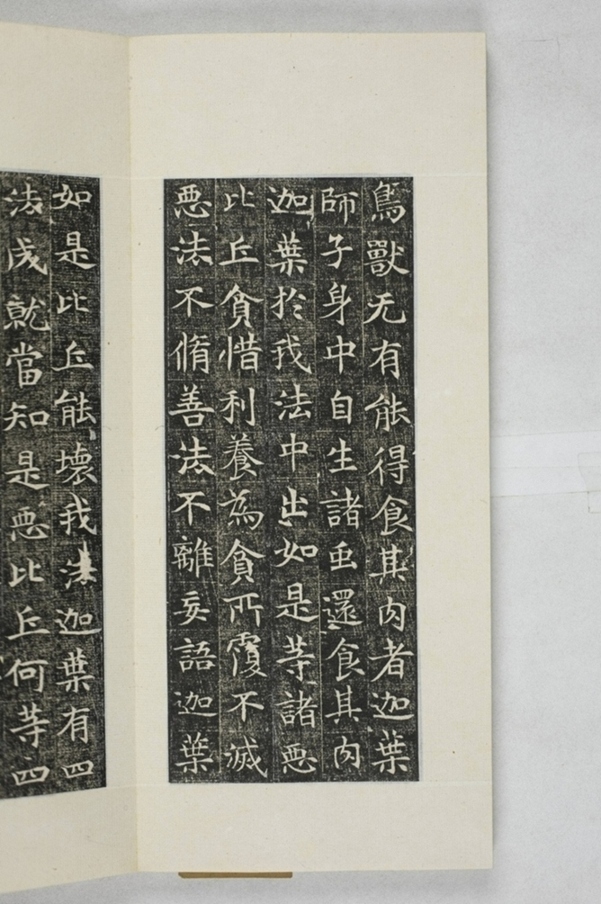 鳥獸无有能得食其肉者迦葉
師子身中自生諸虫還食其肉
迦葉於我法中出如是等諸惡
比丘貪惜利養為貪所覆不滅
惡法不脩善法不離妄語迦葉
如是比丘能壞我法迦葉有四
法成就當知是惡比丘何等四